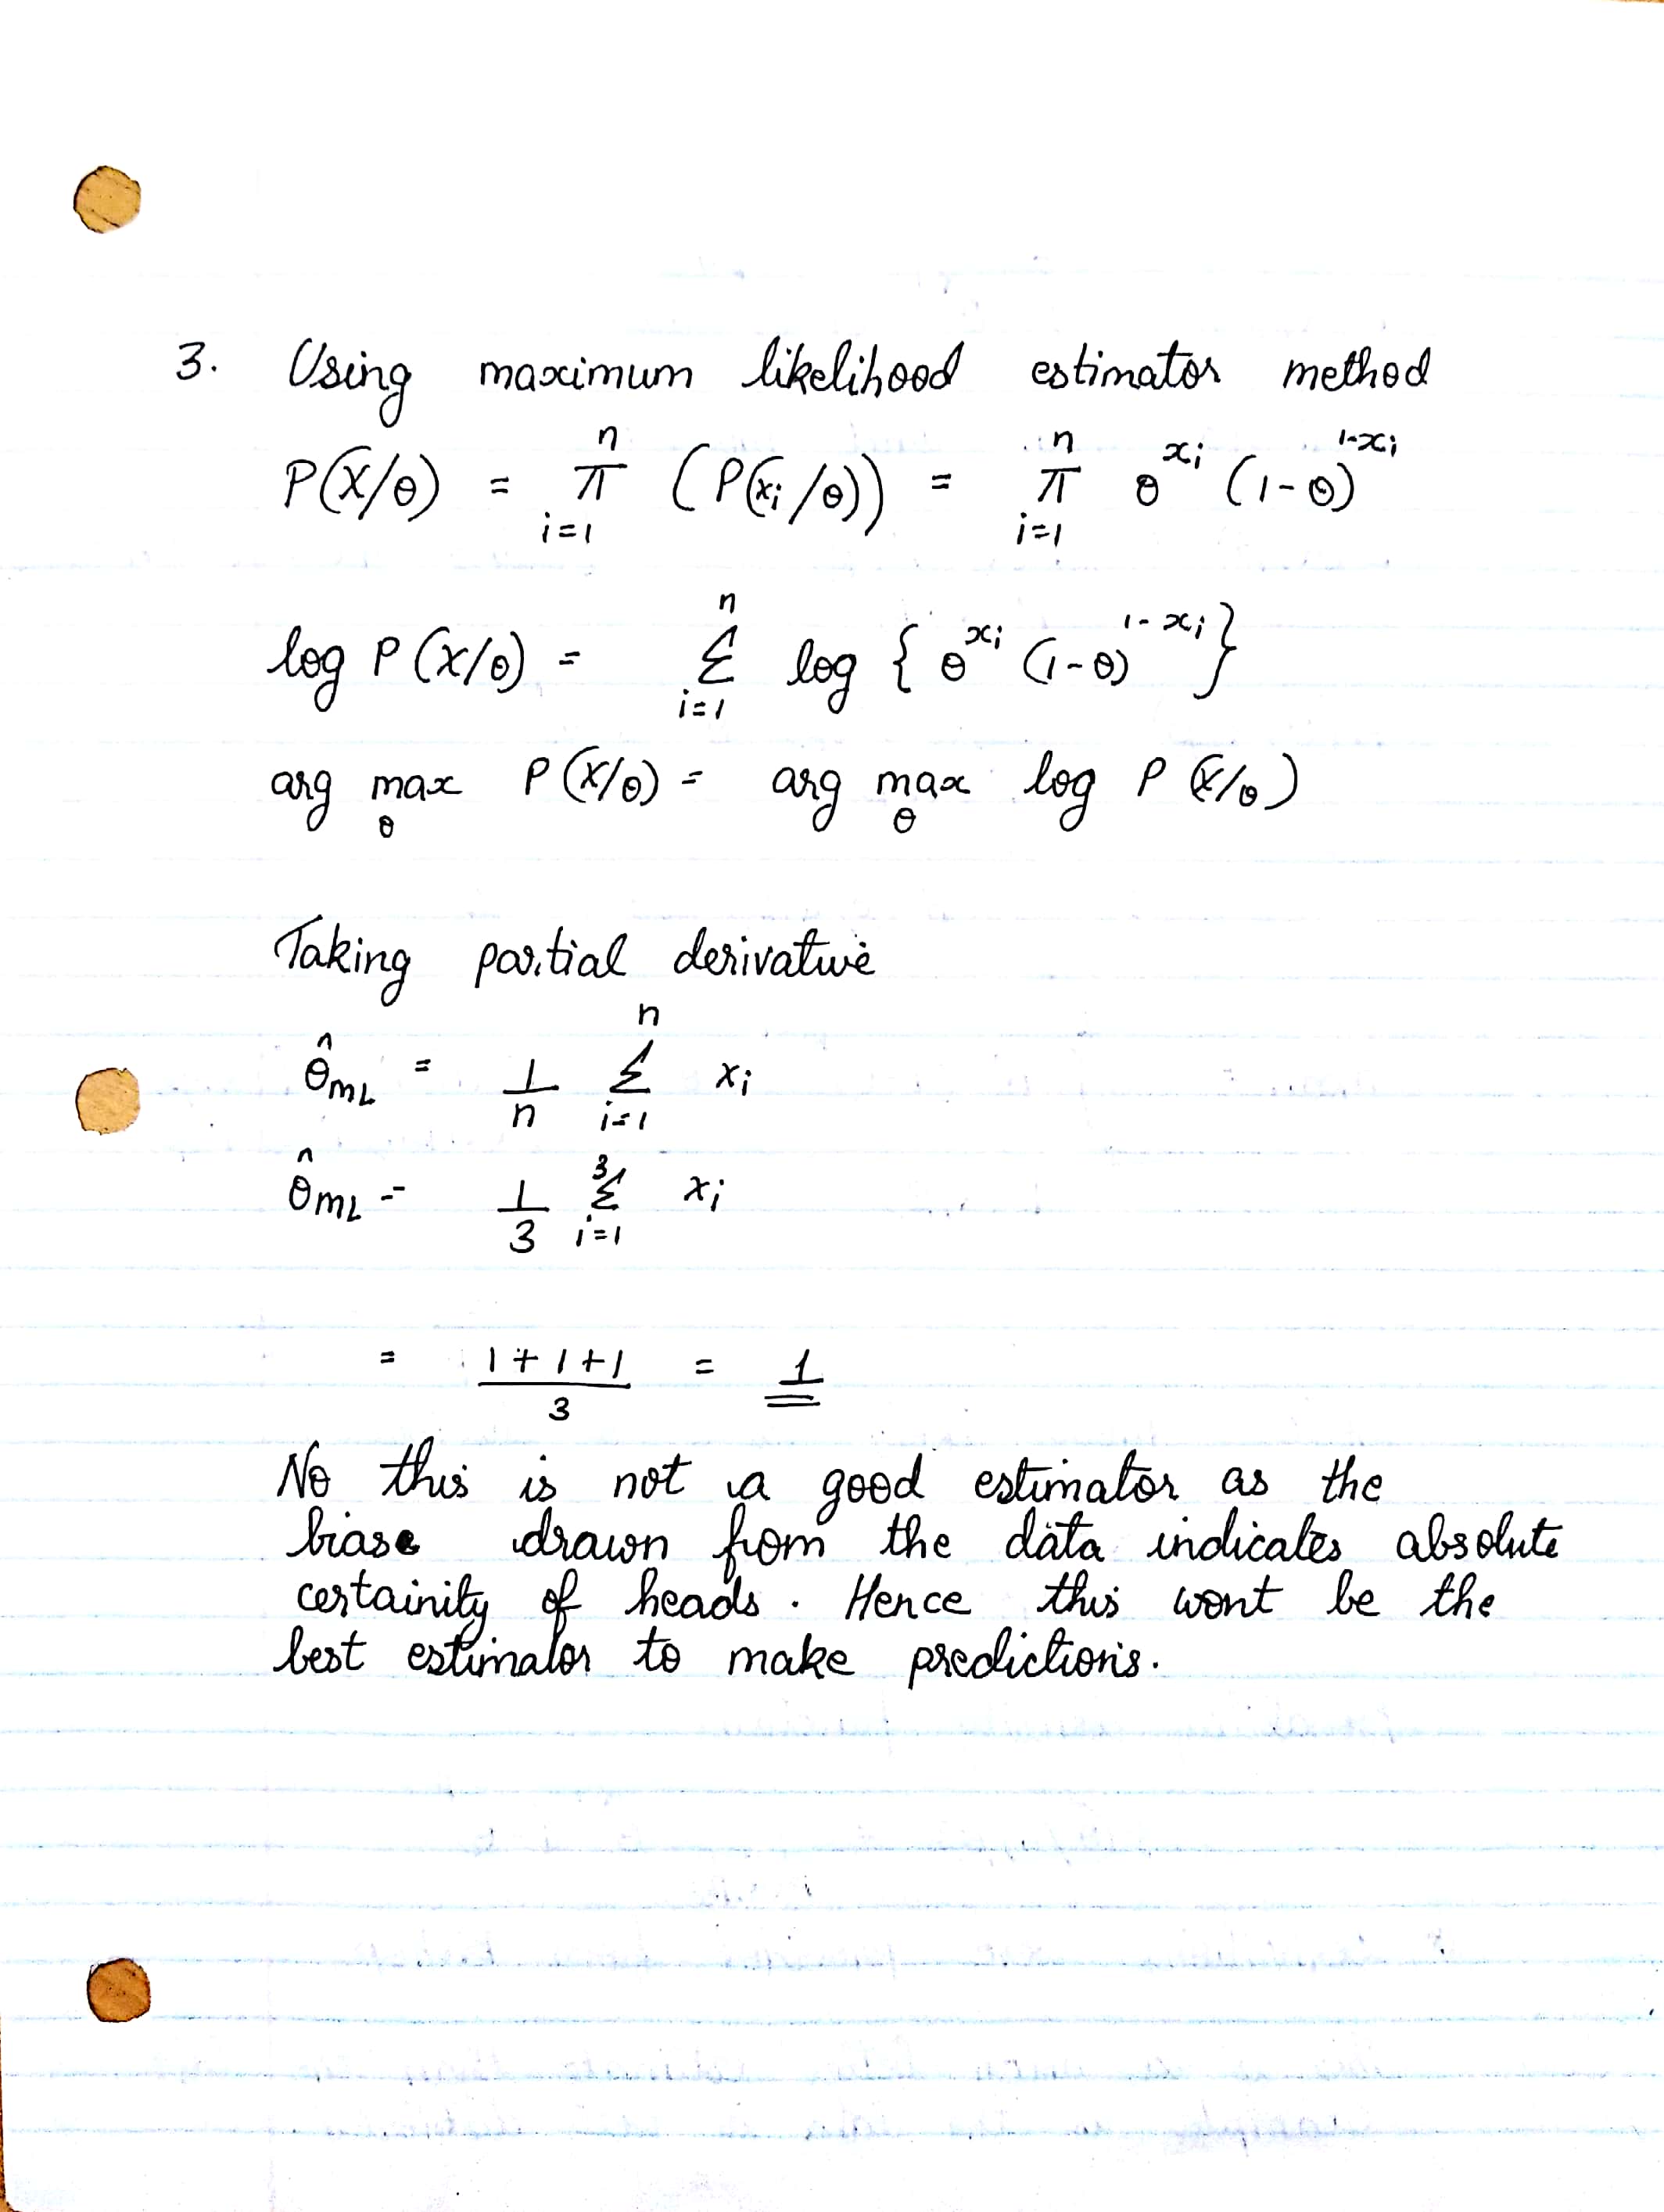 3. Using maximum likelihood estimator method
P(X/θ) = π_{i=1}^{n} (P(x_i/θ)) = π_{i=1}^{n} θ^{x_i} (1-θ)^{1-x_i}
log P(X/θ) = Σ_{i=1}^{n} log { θ^{x_i} (1-θ)^{1-x_i} }
arg max_θ P(X/θ) = arg max_θ log P(X/θ)
Taking partial derivative
θ̂_{ML} = 1/n Σ_{i=1}^{n} x_i
θ̂_{ML} = 1/3 Σ_{i=1}^{3} x_i
= (1+1+1)/3 = 1
No this is not a good estimator as the
biase drawn from the data indicates absolute
certainity of heads. Hence this wont be the
best estimator to make predictions.